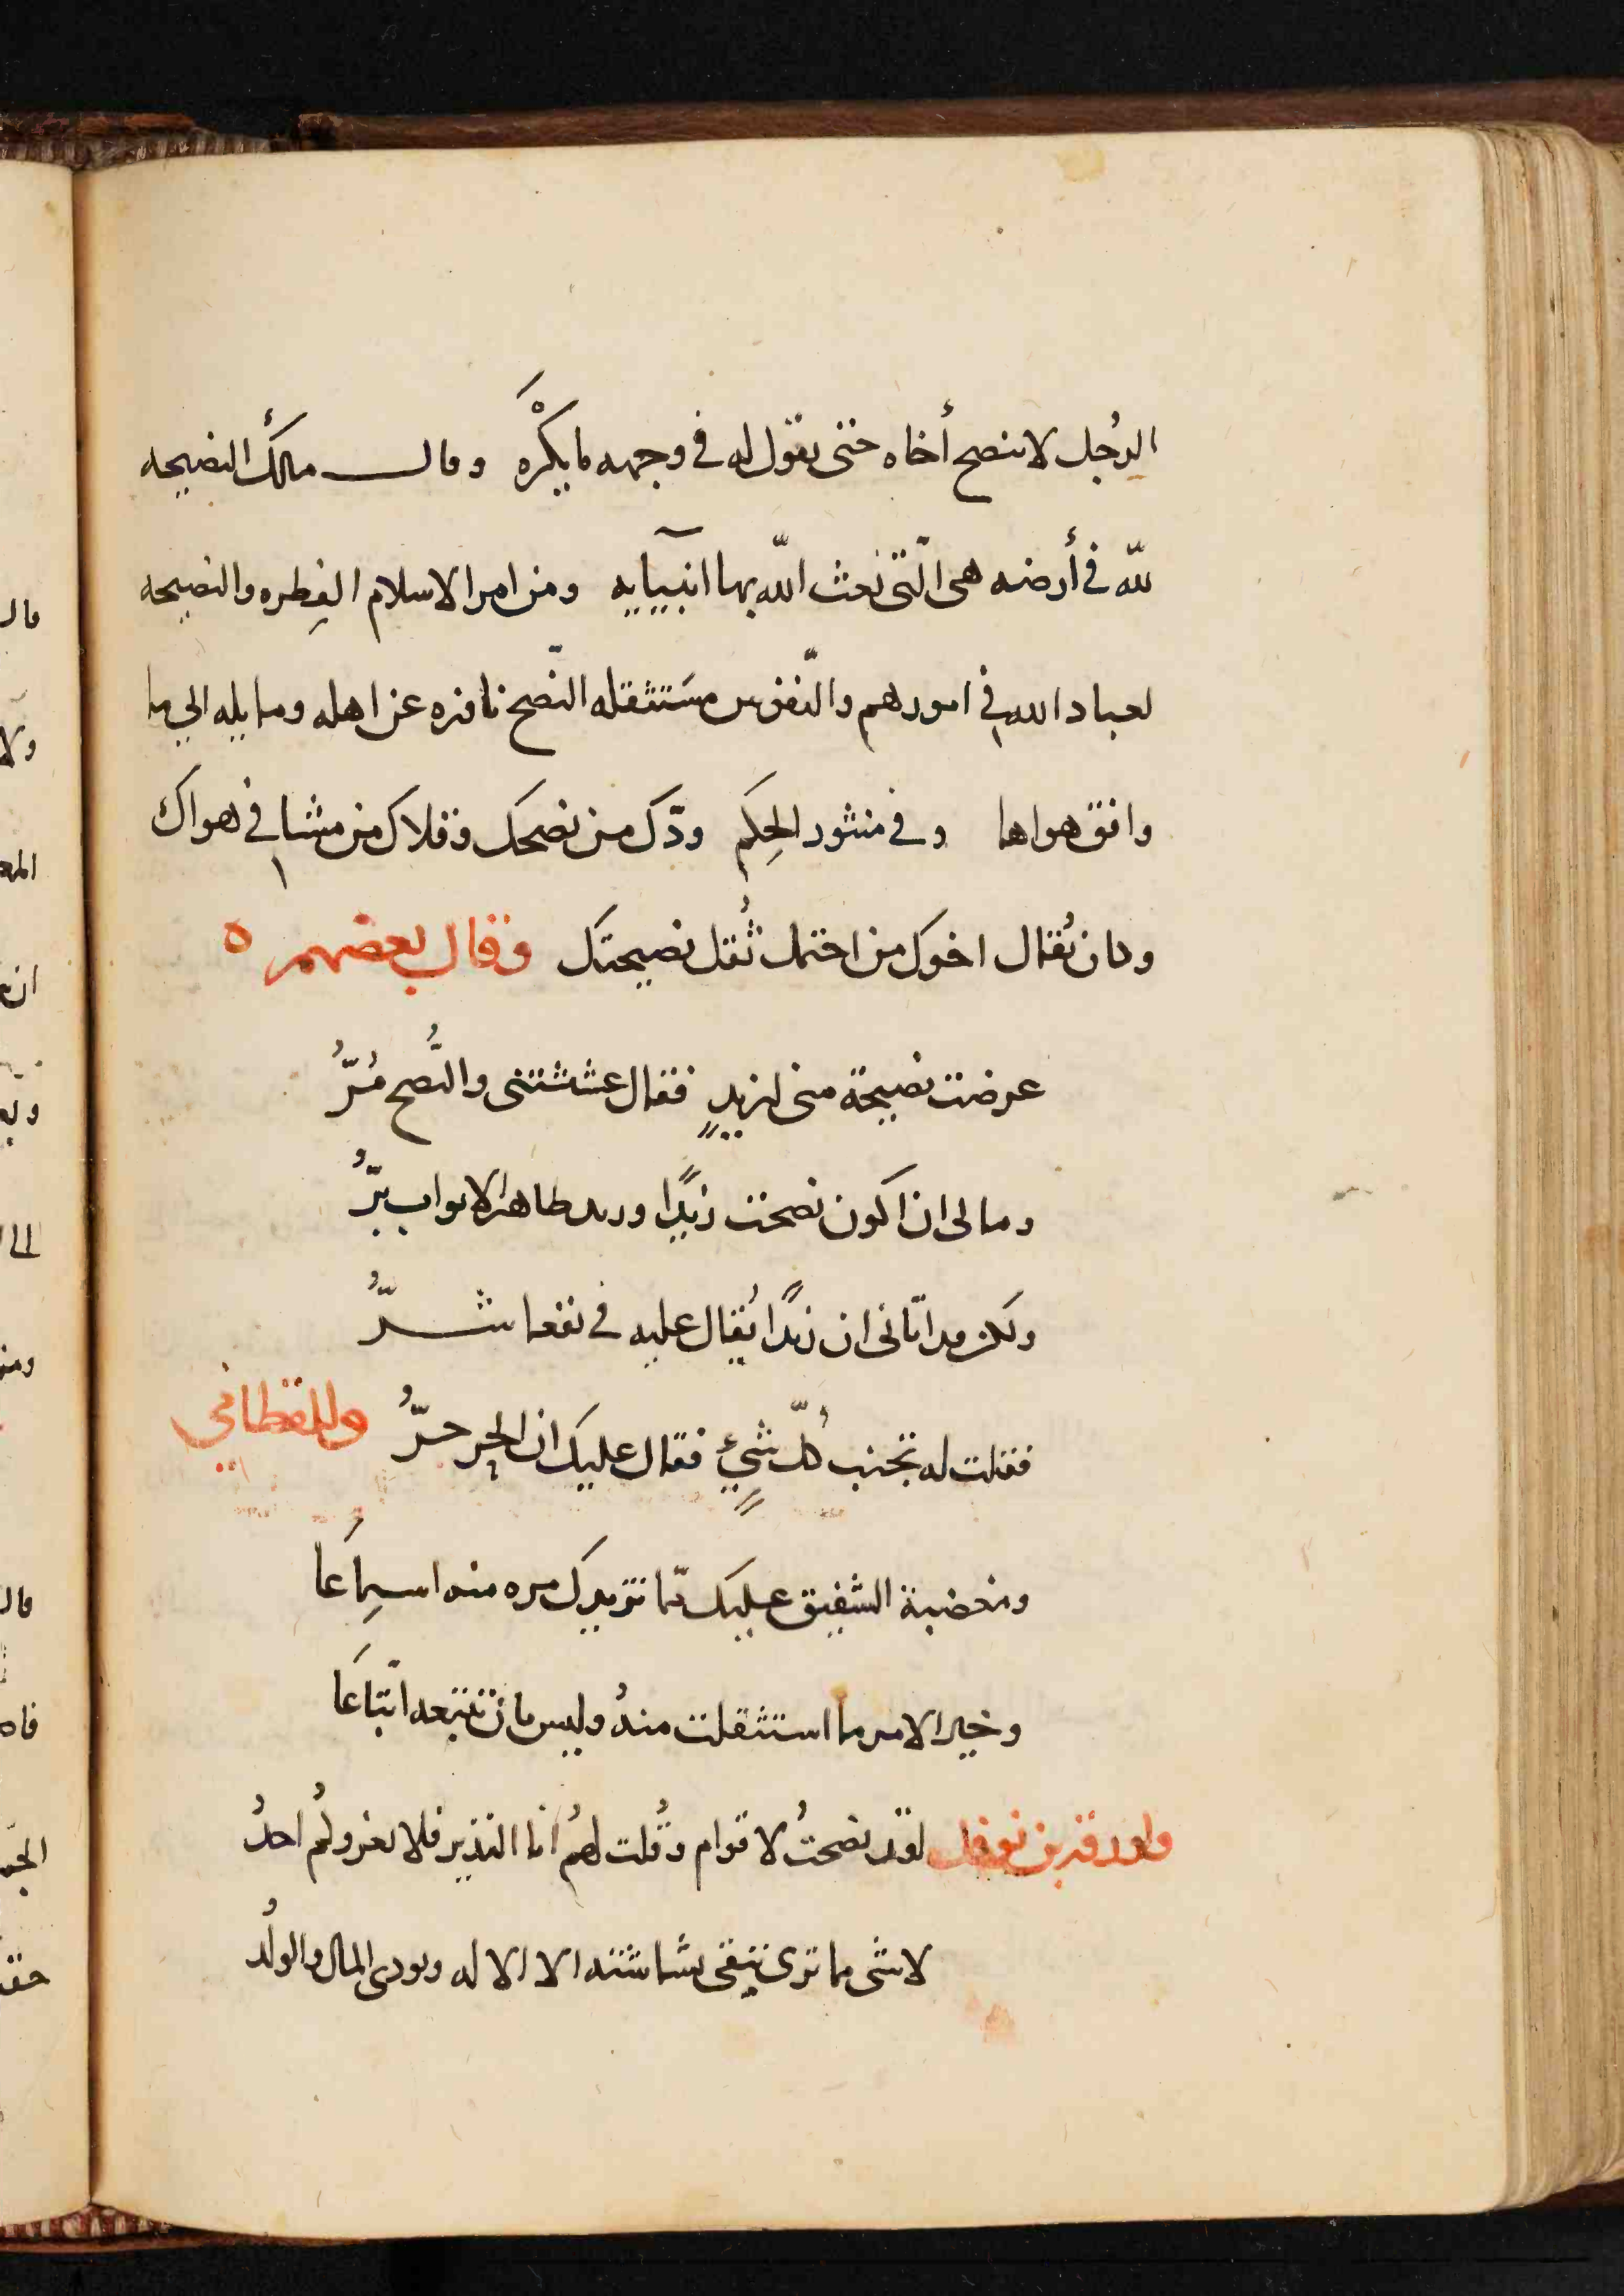 الرجُل لا ينصح أخاه حتى يقول له في وجهه ما يكْره وقال مالك النصيحه
لله في أرضه هي الّتي بعث الله بها انبيآيه ومن امر الاسلام الفِطره والنصيحه
لعباد الله في امورهم والنّفوس مسَتثقله النّصح نافره عن اهله ومايله الي ما
وافق هواها وفي منثور الحِكم ودّك من نصحك وقلاك من مشا في هواك
وكان يُقال اخوك من احتمل ثُقل نصيحتك وقال بعضهم ه
عرضت نصيحة مني لزيدٍ فقال غششتني والنُّصح مُرُّ
ومالي ان اكون نصحت زيدًا وزيد طاهر الاثواب برُّ
ولكن قد اتاني ان زيدًا يُقال عليه في بقعا شرُّ
فقلت له تجنب كُلّ شيءٍ فقال عليك ان الحر حرُّ وللقطامي
ومغضبة الشفيق عليك ممّا تزيدك مره منه اسِماعَا
وخير الامر ما استثقلت منهُ وليس بان تتبعه اتّباعَا
ولورقة بن نوفل لقد نصحتُ لاقوام وقُلت لهُم أنا النذير فلا يغرولُم احدُ
لا شي ما ترى تبقى بشاشته الا الاله ويودي المال والولدُ
قال
ولا